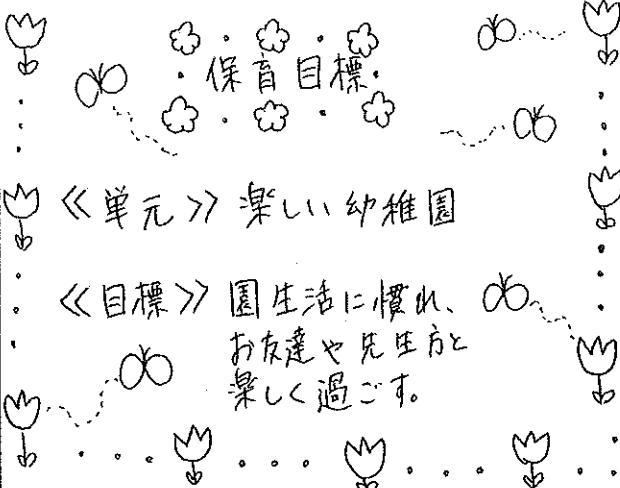 保育目標
≪単元≫ 楽しい幼稚園
≪目標≫ 園生活に慣れ、
お友達や先生方と
楽しく過ごす。